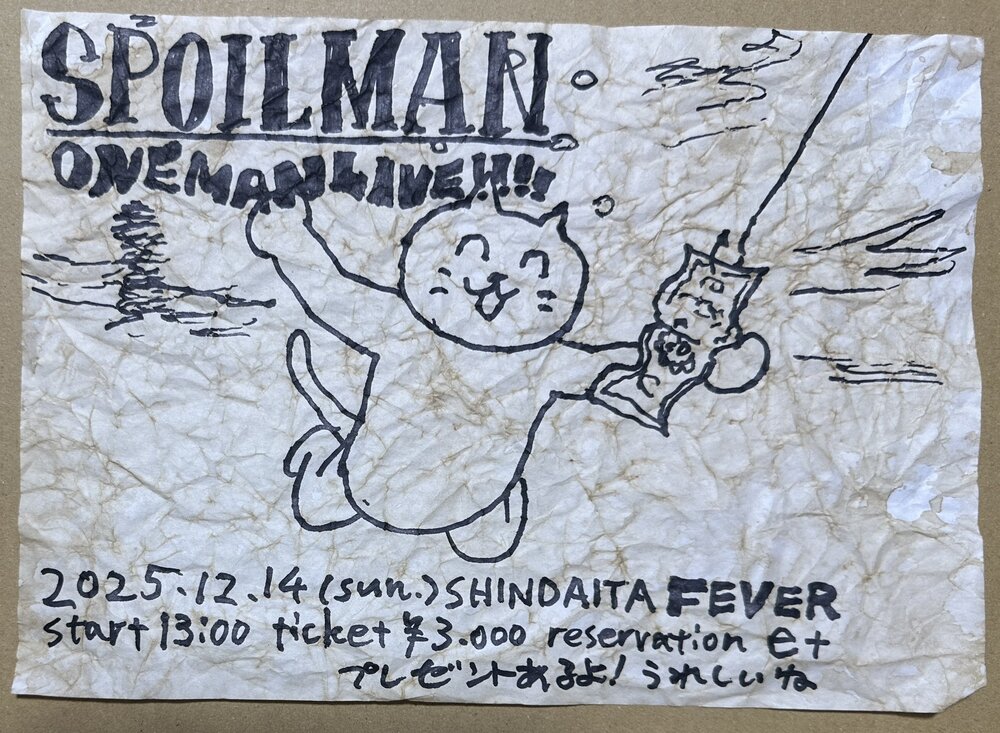 SPOILMAN
ONEMAN LIVE!!!
2025.12.14(sun.) SHINDAITA FEVER
start 13:00 ticket ¥3.000 reservation e+
プレゼントあるよ! うれしいね